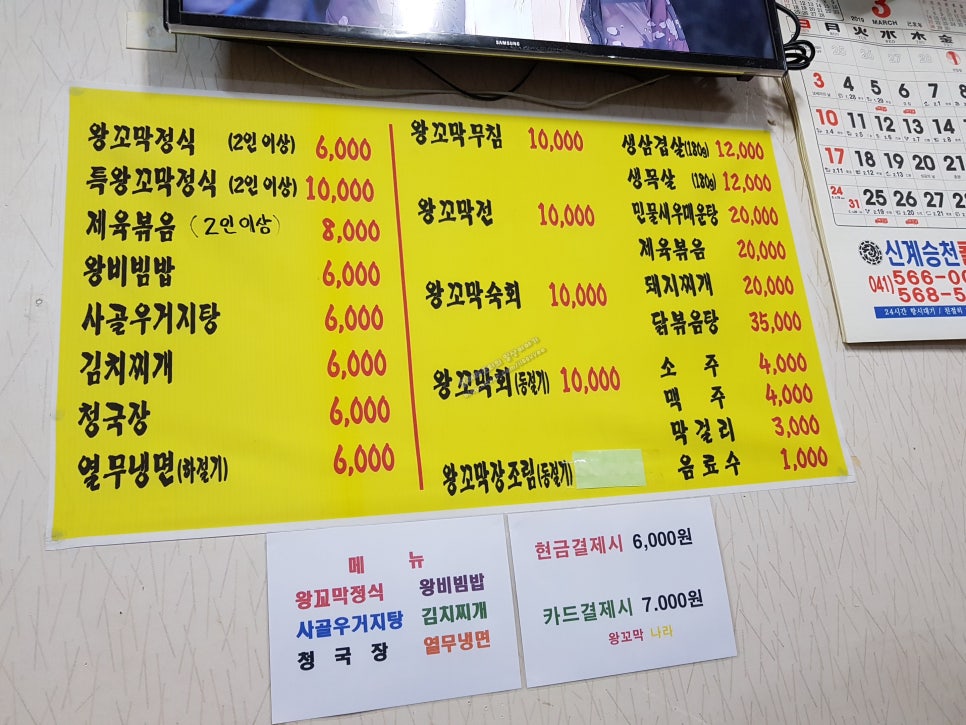 SAMSUNG
왕꼬막정식 (2인 이상) 6,000
특왕꼬막정식 (2인 이상) 10,000
제육볶음 (2인 이상) 8,000
왕비빔밥 6,000
사골우거지탕 6,000
김치찌개 6,000
청국장 6,000
열무냉면(하절기) 6,000
왕꼬막무침 10,000
왕꼬막전 10,000
왕꼬막숙회 10,000
왕꼬막회(동절기) 10,000
왕꼬막장조림(동절기)
생삼겹살(180g) 12,000
생목살 (180g) 12,000
민물새우매운탕 20,000
제육볶음 20,000
돼지찌개 20,000
닭볶음탕 35,000
소 주 4,000
맥 주 4,000
막걸리 3,000
음료수 1,000
메 뉴
왕꼬막정식 왕비빔밥
사골우거지탕 김치찌개
청 국 장 열무냉면
현금결제시 6,000원
카드결제시 7.000원
왕꼬막 나라
2019 3 MARCH
日 月 火 水 木 金
25 26 27 28 1
3 4 5 6 7 8
10 11 12 13 14
17 18 19 20 21
24 31 25 26 27 28
신계승천
041) 566-00
568-5
24시간 항시대기